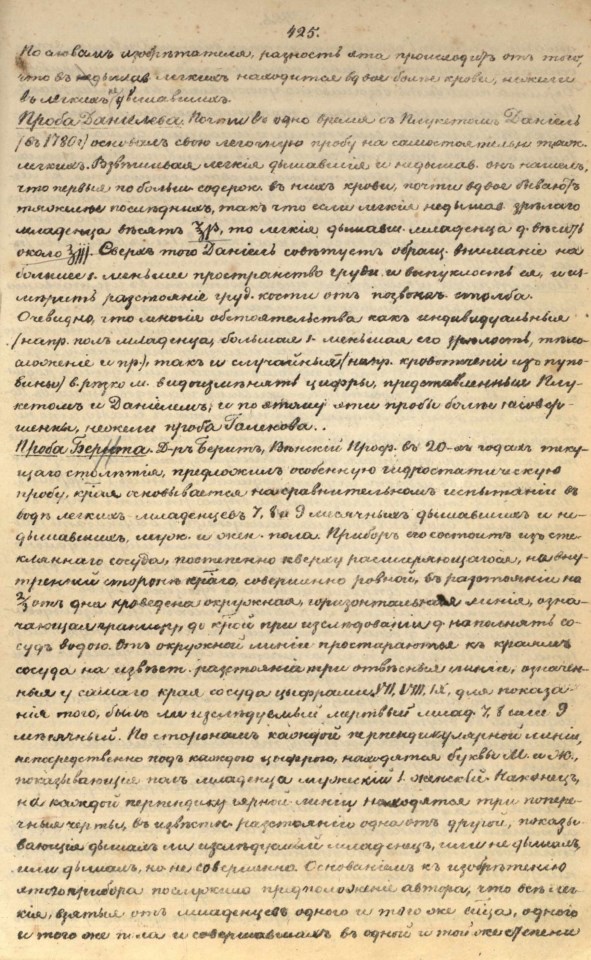 425.
По словамъ изобрѣтателя, разность эта происходитъ отъ того,
что въ дышав. легкихъ находится вдвое болѣе крови, нежели
въ легкихъ недышавшихъ.
Проба Даніелева. Почти въ одно время съ Плукетомъ Даніель
(въ 1780 г) основалъ свою легочную пробу на самостоятельн. тяж.
легкихъ. Взвѣшивая легкія дышавшія и недышав. онъ нашелъ,
что первыя по больш. содерж. въ нихъ крови, почти вдвое бываютъ
тяжелѣе послѣднихъ, такъ что если легкія недышав. зрѣлаго
младенца вѣсятъ то легкія дышавш. младенца д. вѣсить
около Сверхъ того Даніель совѣтуетъ обращ. вниманіе на
большее l. меньшее пространство груди и выпуклость ея, и из-
мѣрить разстояніе груд. кости отъ позвоноч. столба.
Очевидно, что многія обстоятельства какъ индивидуальныя
(напр. полъ младенца, большая l. меньшая его зрѣлость, тѣло-
сложеніе и пр.), такъ и случайныя (напр. кровотеченіе изъ пупо-
вины) в. рѣзко м. видоизмѣнять цифры, представленныя Плу-
кетомъ и Даніелемъ; и поэтому эти пробы болѣе несовер-
шенны, нежели проба Галенова..
Проба Бернта. Д-ръ Бернтъ, Вѣнскій Проф. въ 20-хъ годахъ теку-
щаго столѣтія, предложилъ особенную гидростатическую
пробу, края основывается на сравнительномъ испытаніи въ
водѣ легкихъ младенцевъ 7, 8 и 9 мѣсячныхъ дышавшихъ и не-
дышавшихъ, муж. и жен. пола. Приборъ его состоитъ изъ сте-
кляннаго сосуда, постепенно кверху расширяющагося, на вну-
тренней сторонѣ краго, совершенно ровной, въ разстояніи на
2/3 отъ дна проведена окружная, горизонтальная линія, озна-
чающая границу, до крой при изслѣдованіи д. наполнять со-
судъ водою. Отъ окружной линіи простираются къ краямъ
сосуда на извѣст. разстояніе три отвѣсныя линіи, означен-
ныя у самаго края сосуда цыфрами VII, VIII, IX, для показа-
нія того, былъ ли изслѣдуемый мертвый млад. 7, 8 или 9
мѣсячный. По сторонамъ каждой перпендикулярной линіи,
непосредственно подъ каждою цыфрою, находятся буквы М. и Ж.,
показывающія полъ младенца мужескій l. женскій. Наконецъ,
на каждой перпендикулярной линіи находятся три попере-
чныя черты, въ извѣстн. разстояніи одна отъ другой, показы-
вающія дышалъ ли изслѣдуемый младенецъ, или не дышалъ,
или дышалъ, но не совершенно. Основаніемъ къ изобрѣтенію
этого прибора послужило предположеніе автора, что всѣ лег-
кія, взятыя отъ младенцевъ одного и того же мѣсяца, одного
и того же пола и совершавшихъ въ одной и той же степени